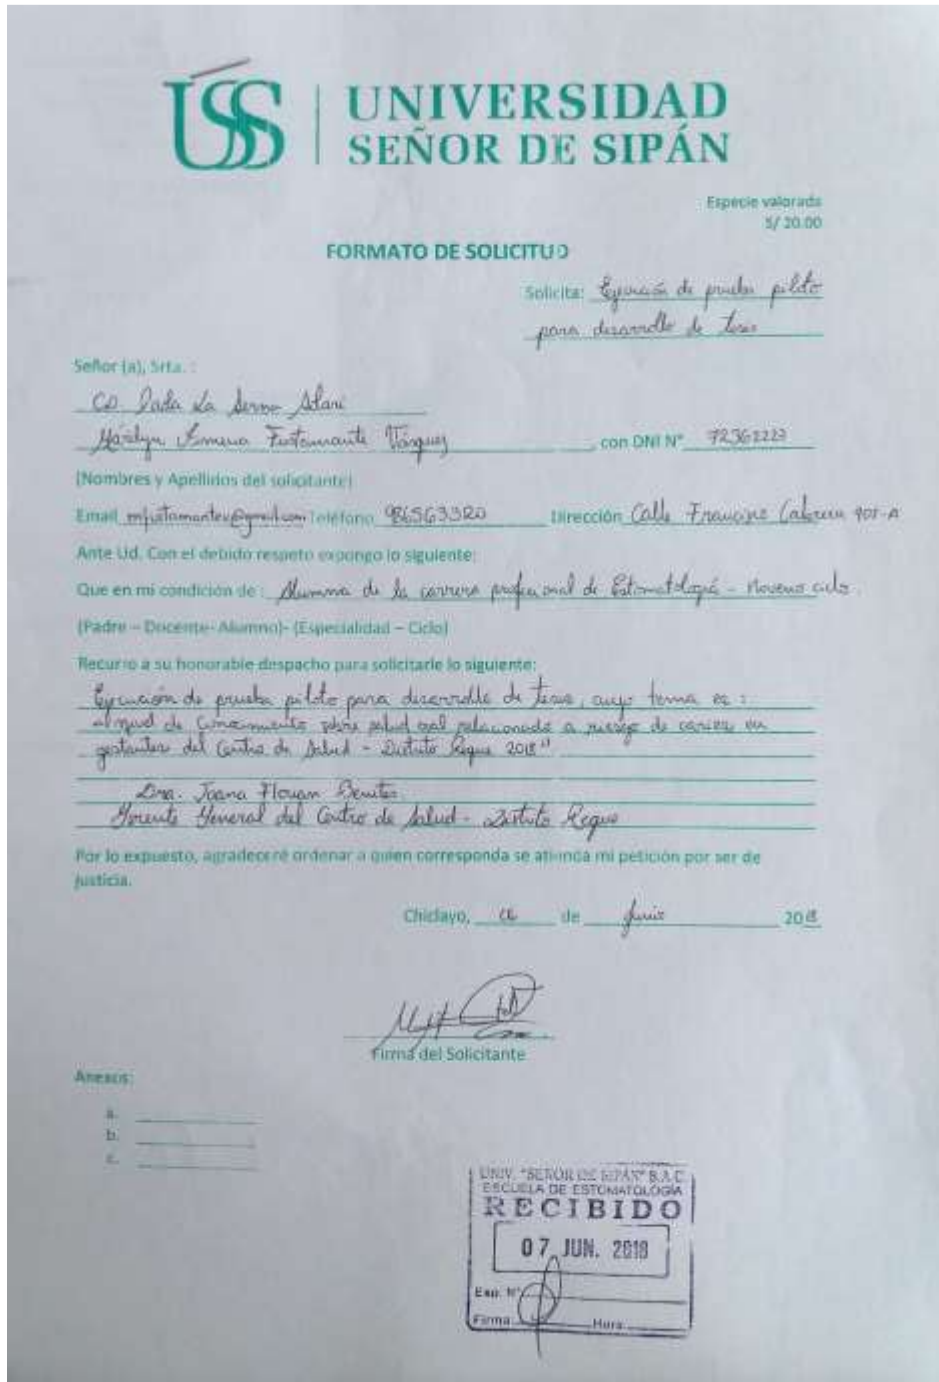 USS | UNIVERSIDAD
SEÑOR DE SIPÁN
Especie valorada
S/ 20.00
FORMATO DE SOLICITUD
Solicita: Ejecución de prueba piloto
para desarrollo de tesis
Señor (a), Srta. :
CD. La Serna
Fustamante Vásquez, con DNI N° 72362223
(Nombres y Apellidos del solicitante)
Email mfustamantev@gmail.com Teléfono 986563320 Dirección Calle Cabrera 901-A
Ante Ud. Con el debido respeto expongo lo siguiente:
Que en mi condición de : Alumna de la carrera profesional de Estomatología - Noveno ciclo.
(Padre – Docente- Alumno)- (Especialidad – Ciclo)
Recurro a su honorable despacho para solicitarle lo siguiente:
Ejecución de prueba piloto para desarrollo de tesis, cuyo tema es :
"Nivel de Conocimiento sobre salud oral relacionado a riesgo de caries en
gestantes del Centro de Salud - Distrito Reque 2018"
Dra. Joana Benites
Gerente General del Centro de Salud - Distrito Reque
Por lo expuesto, agradeceré ordenar a quien corresponda se atienda mi petición por ser de
justicia.
Chiclayo, de Junio 2018
Firma del Solicitante
Anexos:
a.
b.
c.
UNIV. "SEÑOR DE SIPÁN" S.A.C.
ESCUELA DE ESTOMATOLOGÍA
RECIBIDO
07 JUN. 2018
Exp. N°
Firma Hora